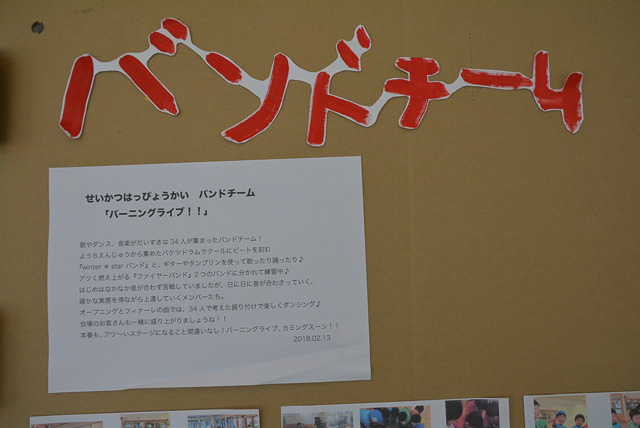 バンドチーム
せいかつはっぴょうかい　バンドチーム
「バーニングライブ！！」
歌やダンス、音楽がだいすきな34人が集まったバンドチーム！
ようちえんじゅうから集めたバケツドラムでクールにビートを刻む
『winter＊starバンド』と、ギターやタンブリンを使って歌ったり踊ったり♪
アツく燃え上がる『ファイヤーバンド』2つのバンドに分かれて練習中♪
はじめはなかなか息が合わず苦戦していましたが、日に日に音が合わさっていく、
確かな実感を得ながら上達していくメンバーたち。
オープニングとフィナーレの曲では、34人で考えた振り付けで楽しくダンシング♪
会場のお客さんも一緒に盛り上がりましょうね！！
本番も、アツ〜いステージになること間違いなし！バーニングライブ、カミングスーン！！
2018.02.13